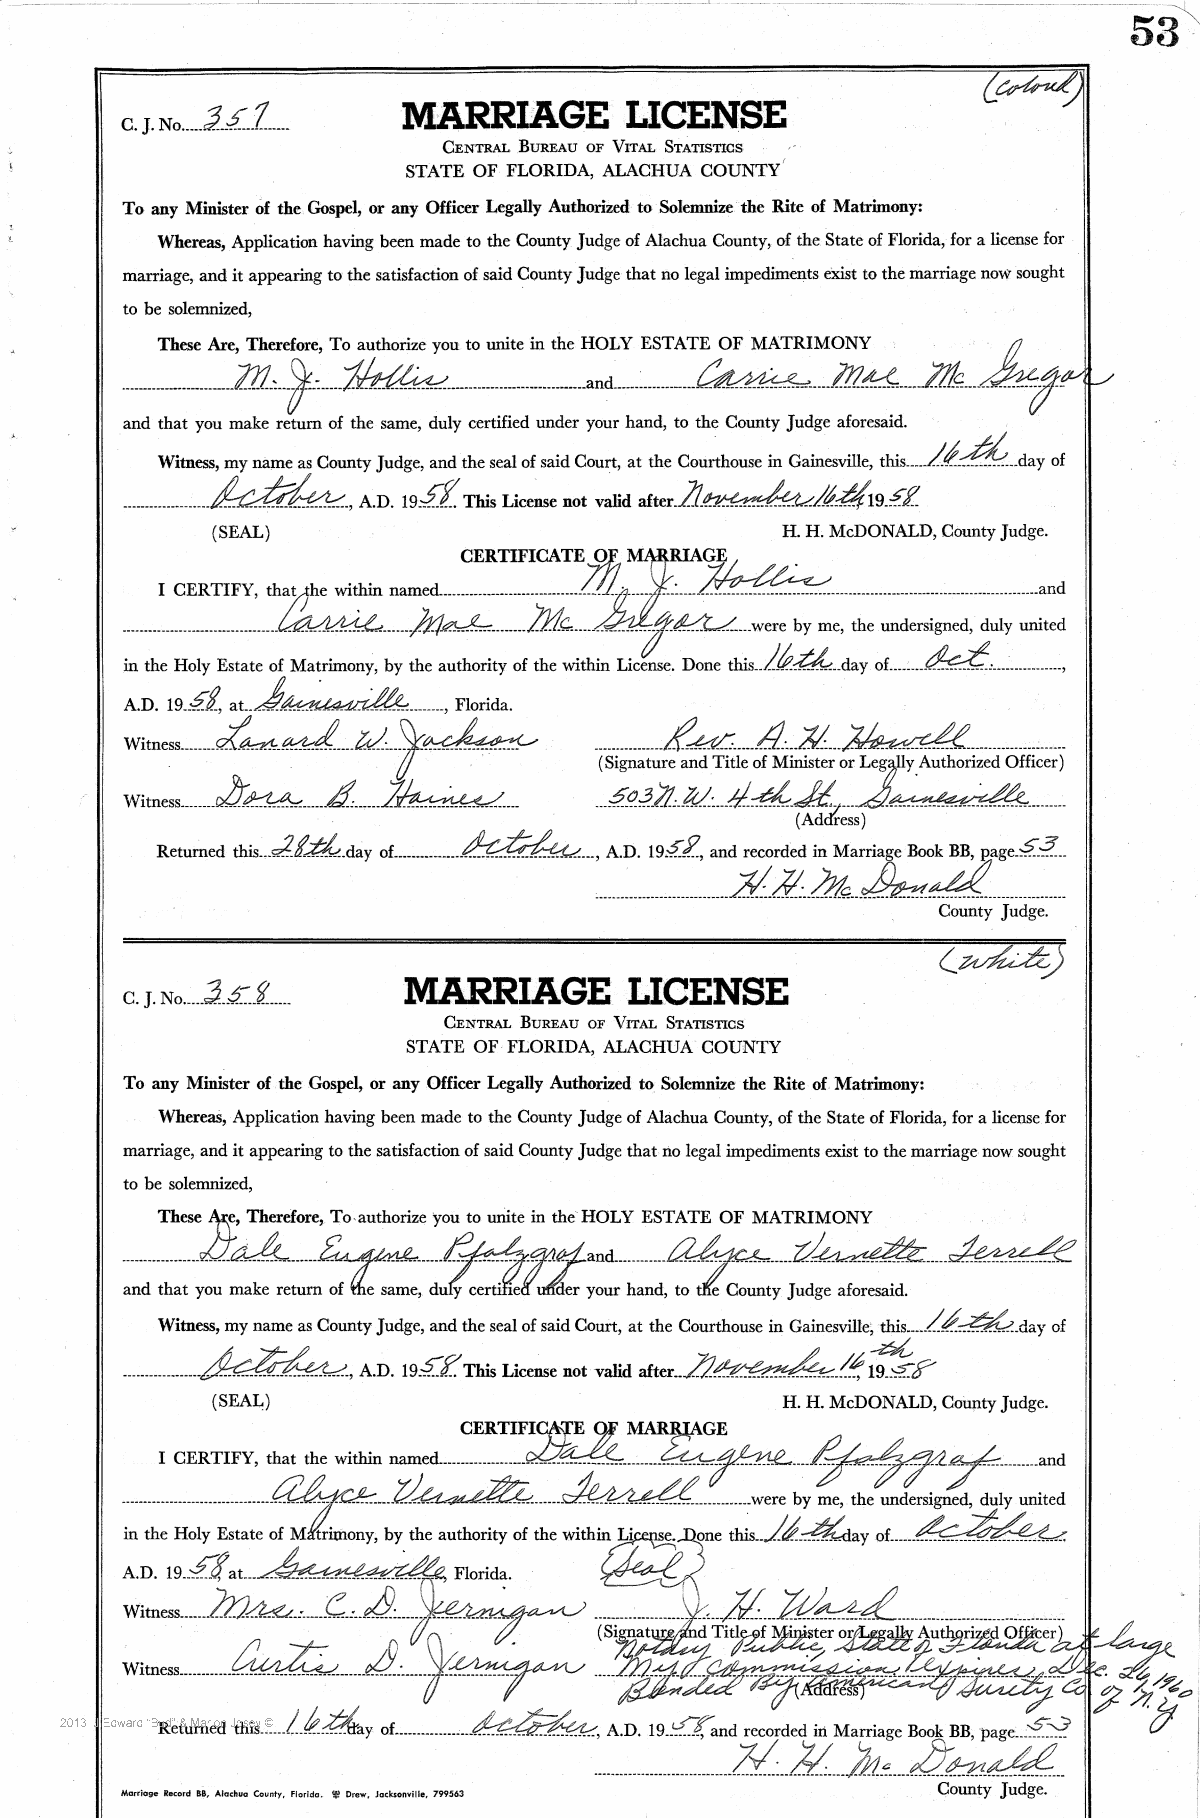 53
(Colored)
C. J. No. 357
MARRIAGE LICENSE
CENTRAL BUREAU OF VITAL STATISTICS
STATE OF FLORIDA, ALACHUA COUNTY
To any Minister of the Gospel, or any Officer Legally Authorized to Solemnize the Rite of Matrimony:
Whereas, Application having been made to the County Judge of Alachua County, of the State of Florida, for a license for
marriage, and it appearing to the satisfaction of said County Judge that no legal impediments exist to the marriage now sought
to be solemnized,
These Are, Therefore, To authorize you to unite in the HOLY ESTATE OF MATRIMONY
M. J. Hollis and Carrie Mae Mc Gregor
and that you make return of the same, duly certified under your hand, to the County Judge aforesaid.
Witness, my name as County Judge, and the seal of said Court, at the Courthouse in Gainesville, this 16th day of
October, A.D. 1958. This License not valid after November 16th, 1958
(SEAL) H. H. McDONALD, County Judge.
CERTIFICATE OF MARRIAGE
I CERTIFY, that the within named M. J. Hollis and
Carrie Mae Mc Gregor were by me, the undersigned, duly united
in the Holy Estate of Matrimony, by the authority of the within License. Done this 16th day of Oct.,
A.D. 1958, at Gainesville, Florida.
Witness Lanard W. Jackson Rev. A. H. Howell
(Signature and Title of Minister or Legally Authorized Officer)
Witness Dora B. Haines 503 N.W. 4th St., Gainesville
(Address)
Returned this 28th day of October, A.D. 1958, and recorded in Marriage Book BB, page 53
H. H. Mc Donald
County Judge.
(White)
C. J. No. 358
MARRIAGE LICENSE
CENTRAL BUREAU OF VITAL STATISTICS
STATE OF FLORIDA, ALACHUA COUNTY
To any Minister of the Gospel, or any Officer Legally Authorized to Solemnize the Rite of Matrimony:
Whereas, Application having been made to the County Judge of Alachua County, of the State of Florida, for a license for
marriage, and it appearing to the satisfaction of said County Judge that no legal impediments exist to the marriage now sought
to be solemnized,
These Are, Therefore, To authorize you to unite in the HOLY ESTATE OF MATRIMONY
Dale Eugene Pfalzgraf and Alyce Vernette Terrell
and that you make return of the same, duly certified under your hand, to the County Judge aforesaid.
Witness, my name as County Judge, and the seal of said Court, at the Courthouse in Gainesville, this 16th day of
October, A.D. 1958. This License not valid after November 16th, 1958
(SEAL) H. H. McDONALD, County Judge.
CERTIFICATE OF MARRIAGE
I CERTIFY, that the within named Dale Eugene Pfalzgraf and
Alyce Vernette Terrell were by me, the undersigned, duly united
in the Holy Estate of Matrimony, by the authority of the within License. Done this 16th day of October,
A.D. 1958, at Gainesville, Florida. (Seal)
Witness Mrs. C. D. Jernigan J. H. Ward
(Signature and Title of Minister or Legally Authorized Officer)
Notary Public, State of Florida at large
Witness Curtis D. Jernigan My commission expires Dec. 26, 1960
Bonded By American Surety Co of N.Y
(Address)
2013 Edward "Bud" & Marion
Returned this 16th day of October, A.D. 1958, and recorded in Marriage Book BB, page 53
H. H. Mc Donald
County Judge.
Marriage Record BB, Alachua County, Florida. Drew, Jacksonville, 799563